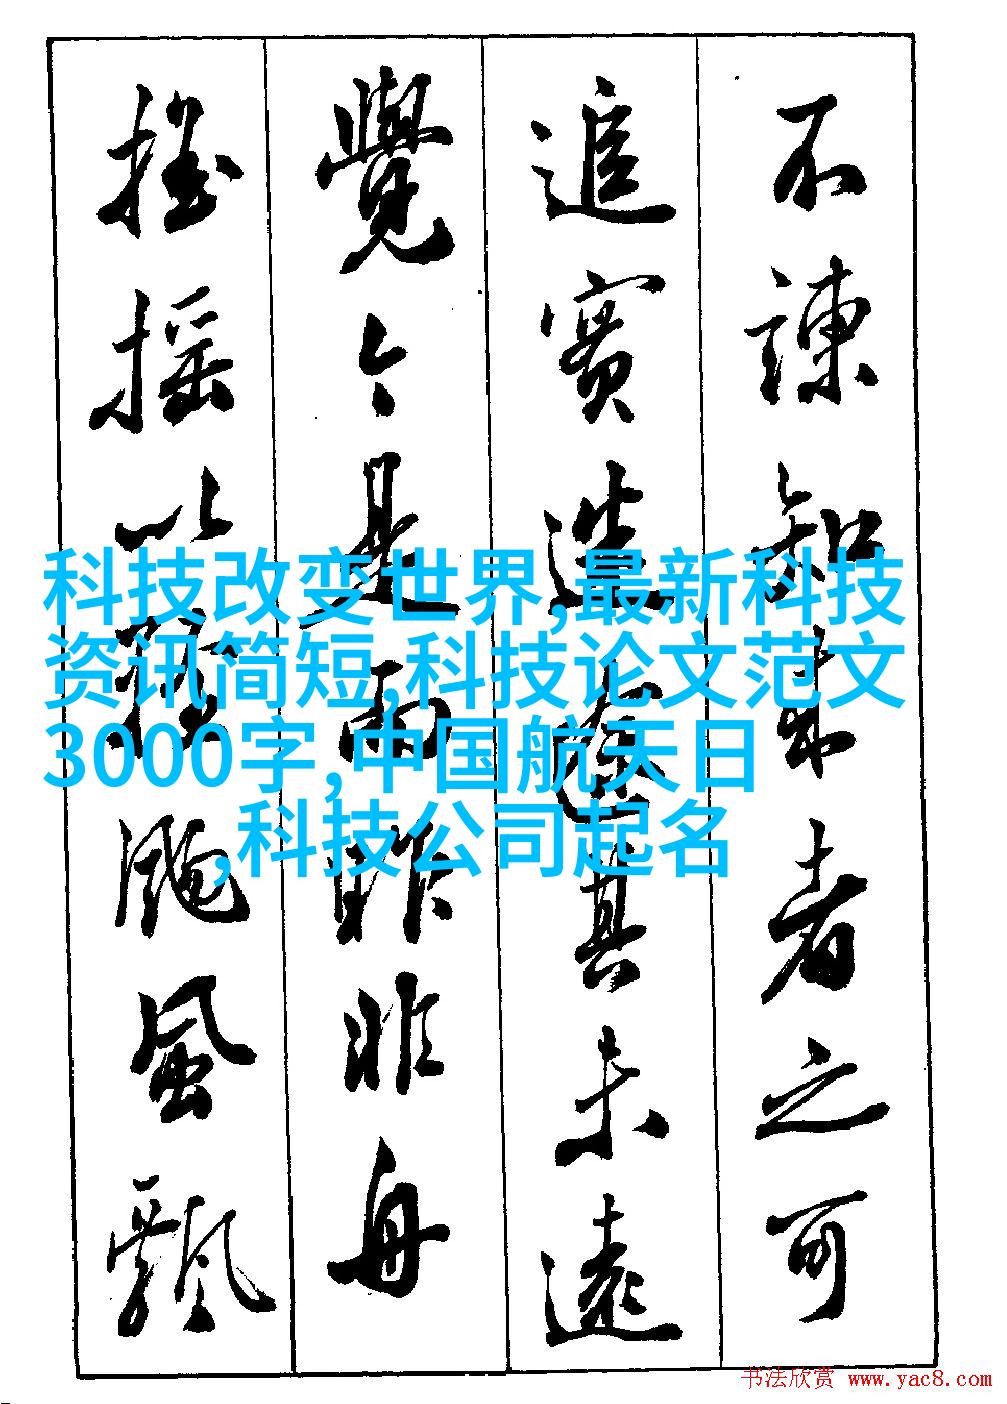 不諫知来者之可
追實迷途其未遠
覺今是而昨非舟
摇摇以輕颺風飄
科技改变世界,最新科技
资讯简短,科技论文范文
3000字,中国航天日
,科技公司起名
书法欣赏 www.yac8.com